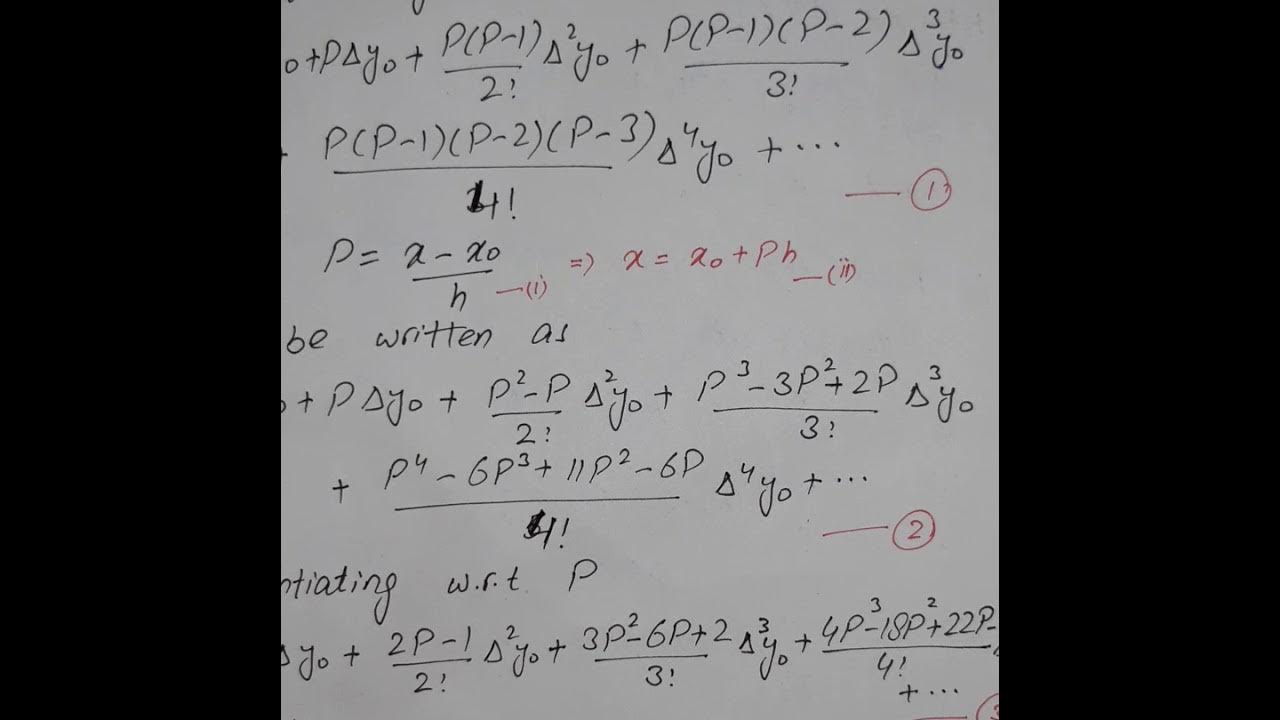 0 + PΔy₀ + P(P-1)/2! Δ²y₀ + P(P-1)(P-2)/3! Δ³y₀
P(P-1)(P-2)(P-3)/4! Δ⁴y₀ + ...
— ①
P = x - x₀/h —(i) => x = x₀ + Ph —(ii)
be written as
+ PΔy₀ + P²-P/2! Δ²y₀ + P³-3P²+2P/3! Δ³y₀
+ P⁴-6P³+11P²-6P/4! Δ⁴y₀ + ...
— ②
ntiating w.r.t P
Δy₀ + 2P-1/2! Δ²y₀ + 3P²-6P+2/3! Δ³y₀ + 4P³-18P²+22P-/4!
+ ...